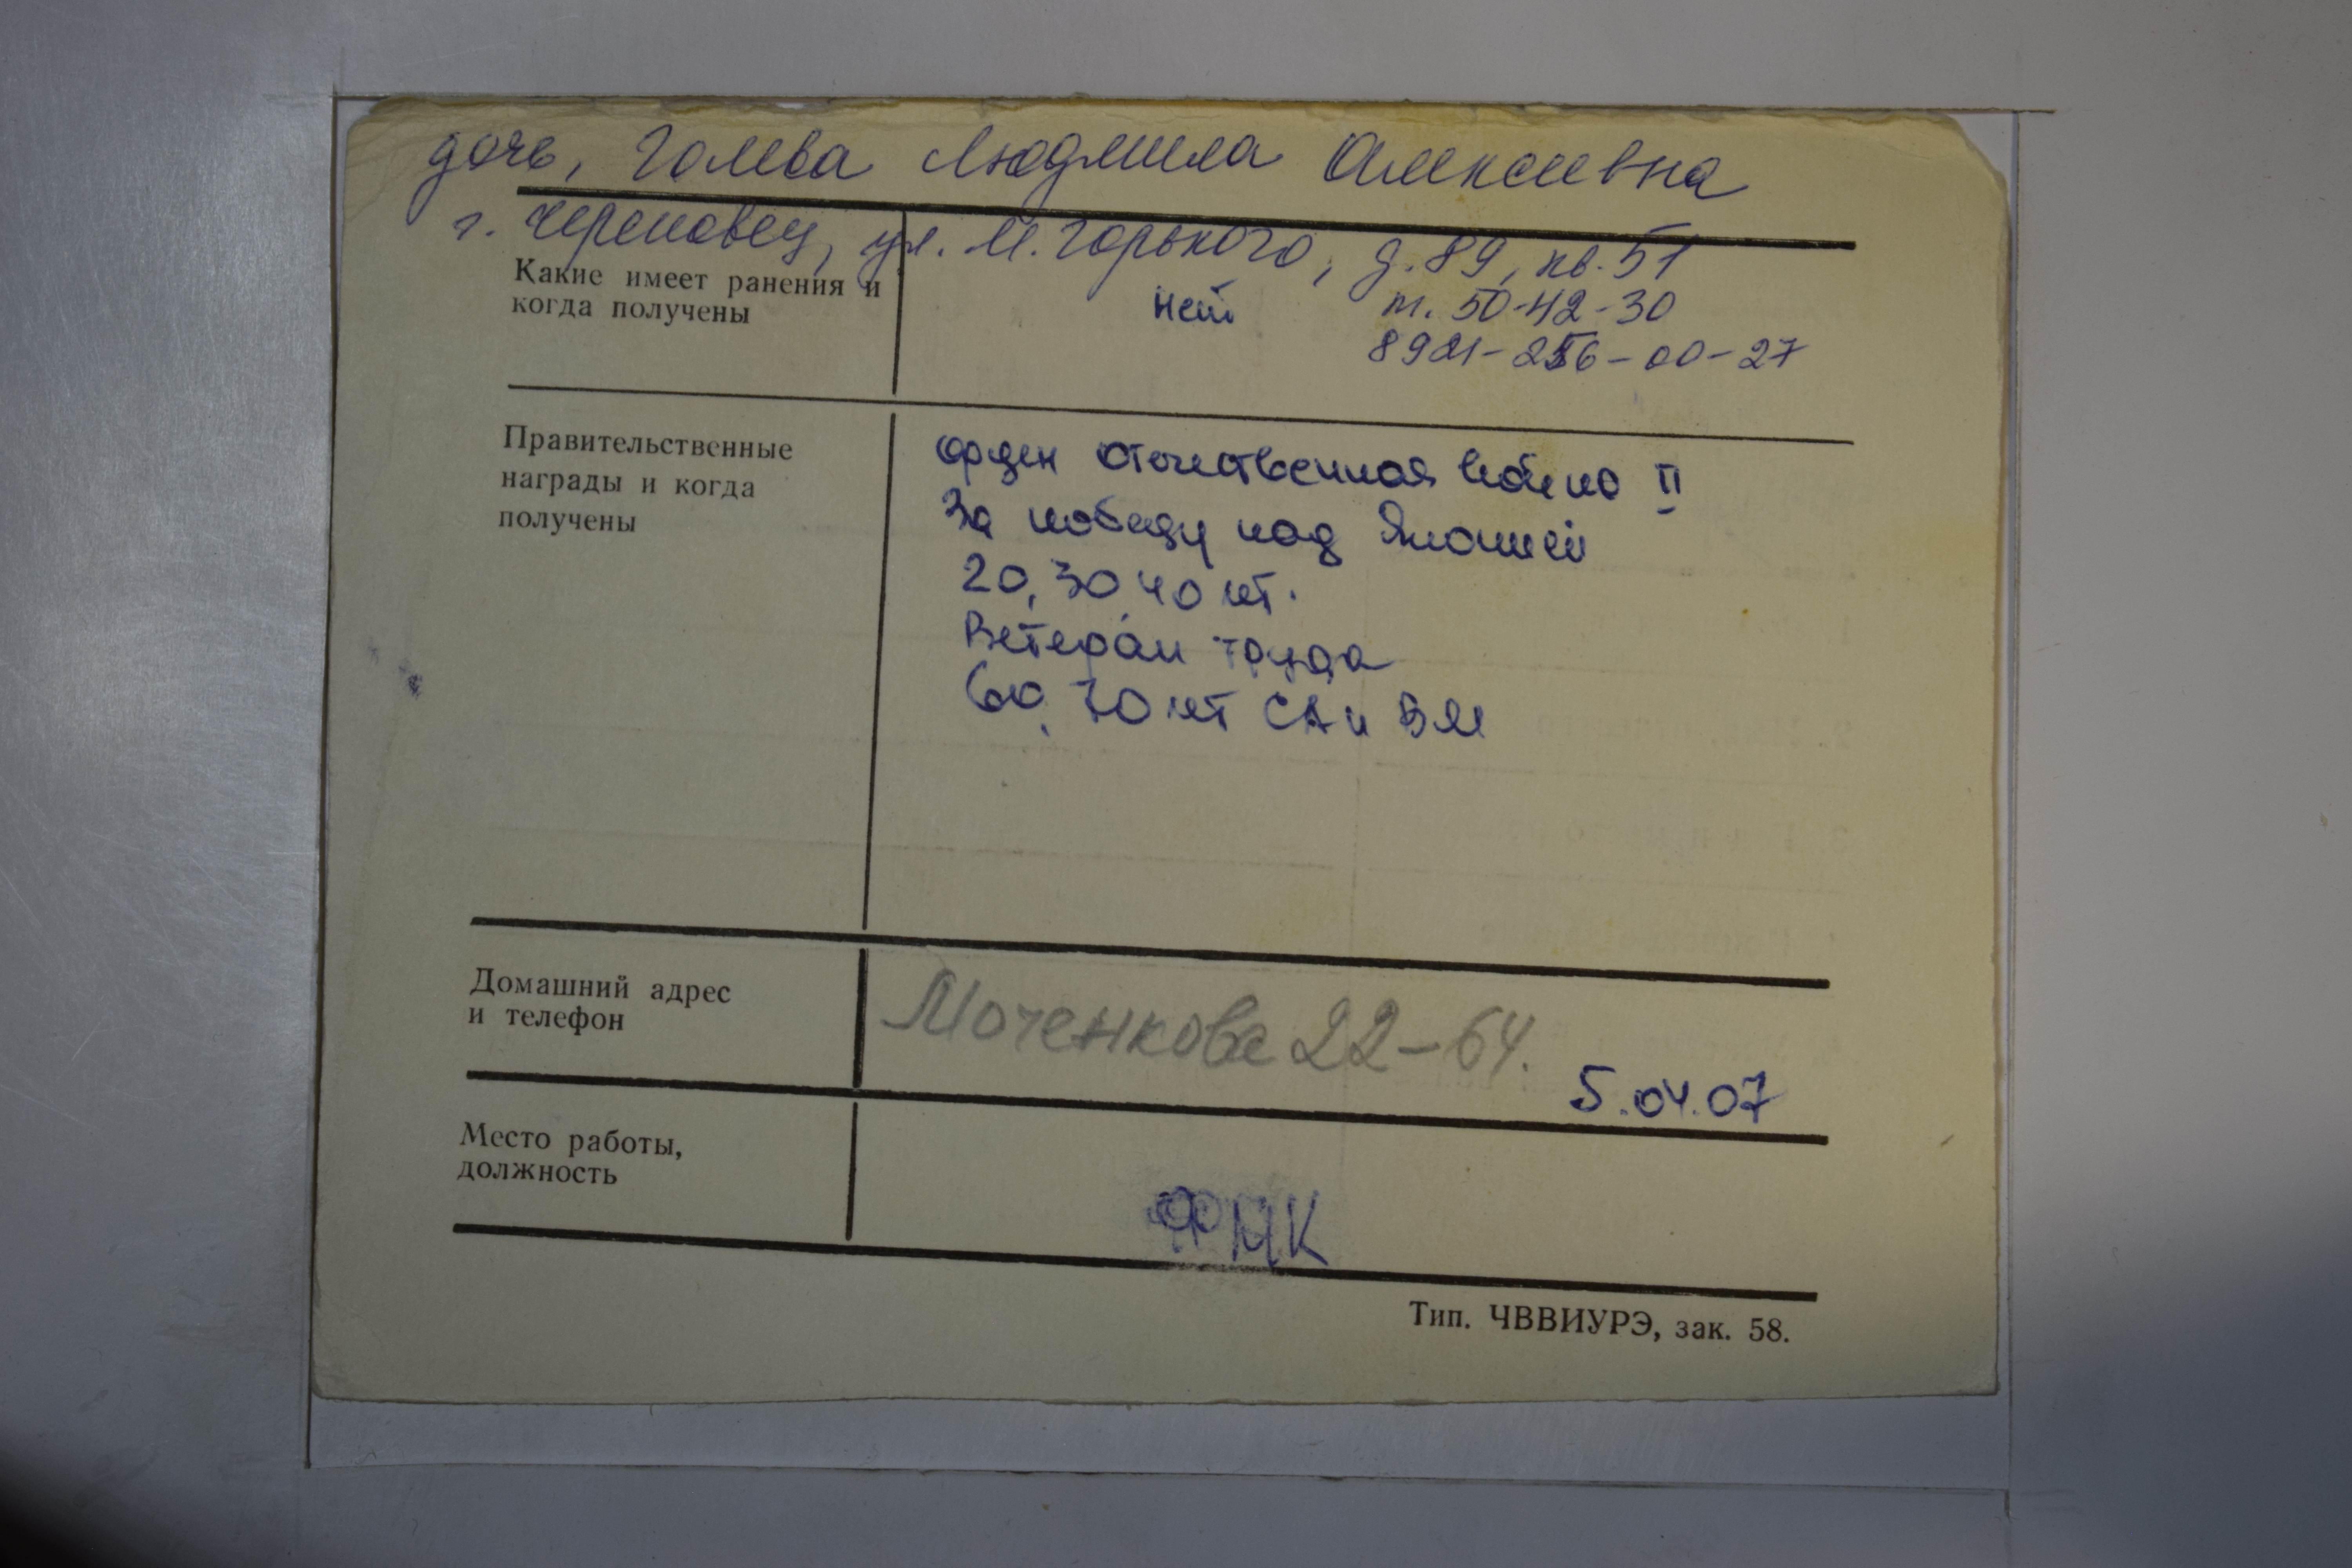 дочь, Голева Людмила Алексеевна
г. Череповец, ул. М. Горького, д. 89, кв. 51
Какие имеет ранения и
когда получены
нет
т. 50-42-30
8921-256-00-27
Правительственные
награды и когда
получены
Орден Отечественная война II
За победу над Японией
20, 30, 40 лет.
Ветеран труда
60, 70 лет СА и ВМ
Домашний адрес
и телефон
Моченкова 22-64.
5.04.07
Место работы,
должность
ФМК
Тип. ЧВВИУРЭ, зак. 58.